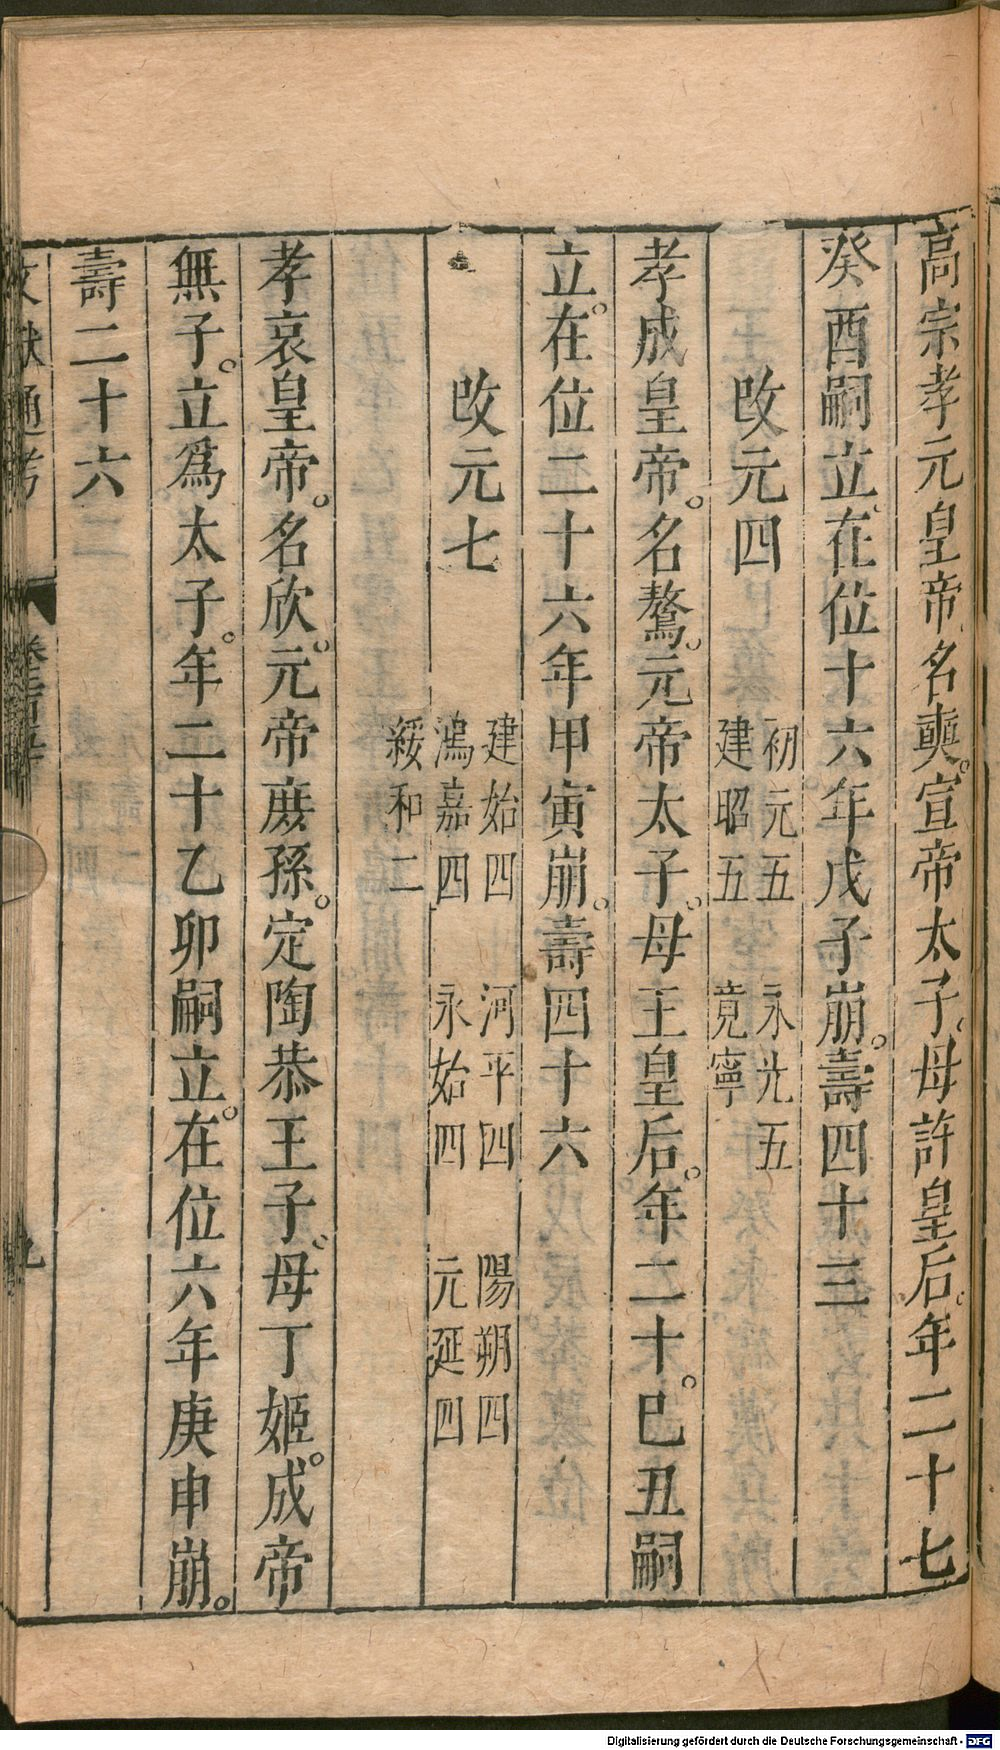 高宗孝元皇帝名奭。宣帝太子。母許皇后。年二十七
癸酉嗣立。在位十六年戊子崩。壽四十三
改元四
初元五 永光五
建昭五 竟寧
孝成皇帝。名驁。元帝太子。母王皇后。年二十。己丑嗣
立。在位二十六年甲寅崩。壽四十六
改元七
建始四 河平四 陽朔四
鴻嘉四 永始四 元延四
綏和二
孝哀皇帝。名欣。元帝庶孫。定陶恭王子。母丁姬。成帝
無子。立爲太子。年二十乙卯嗣立。在位六年庚申崩。
壽二十六
文獻通考
九
Digitalisierung gefördert durch die Deutsche Forschungsgemeinschaft - DFG